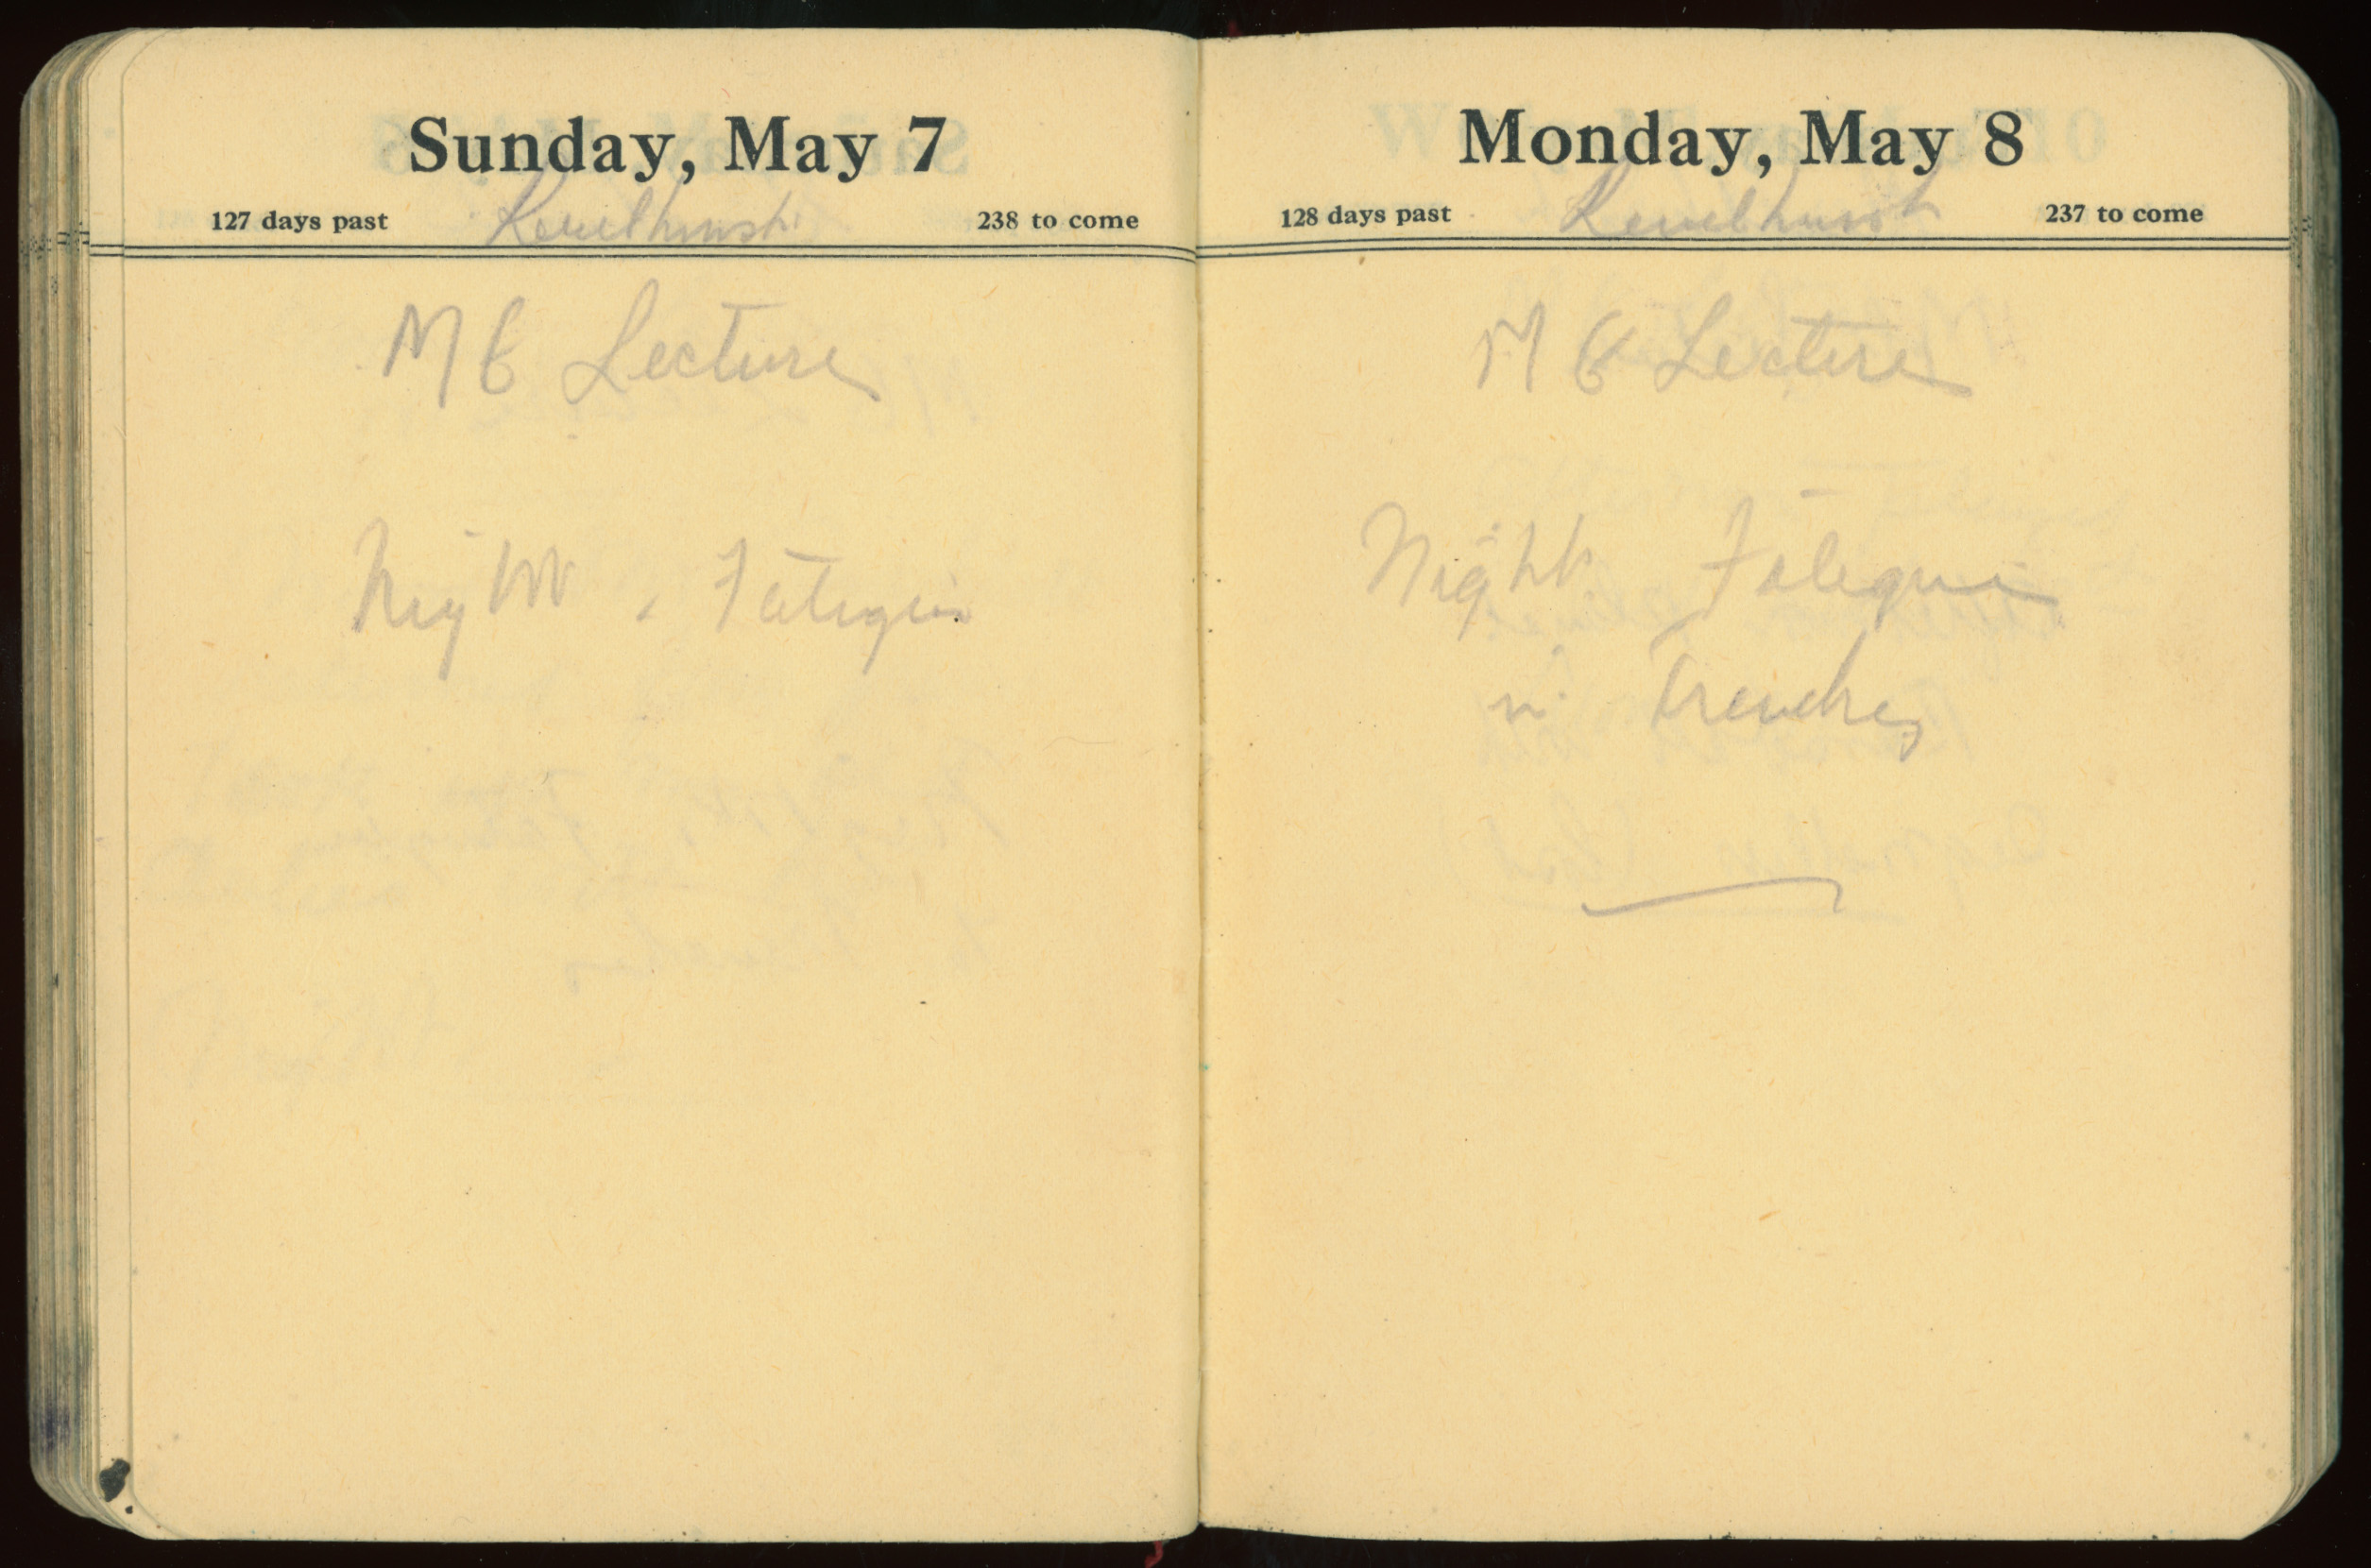 Sunday, May 7
127 days past 238 to come
M G Lecture
Night Fatigue
Monday, May 8
128 days past 237 to come
M G Lecture
Night Fatigue
in Trenches